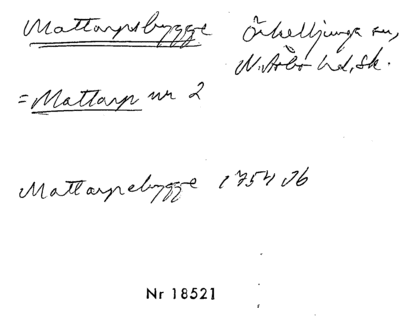 Mattarpsbygge Örkelljunga sn,
N. Åsbo hd, Sk.
= Mattarp nr 2
Mattarpsbygge 1754 Jb
Nr 18521